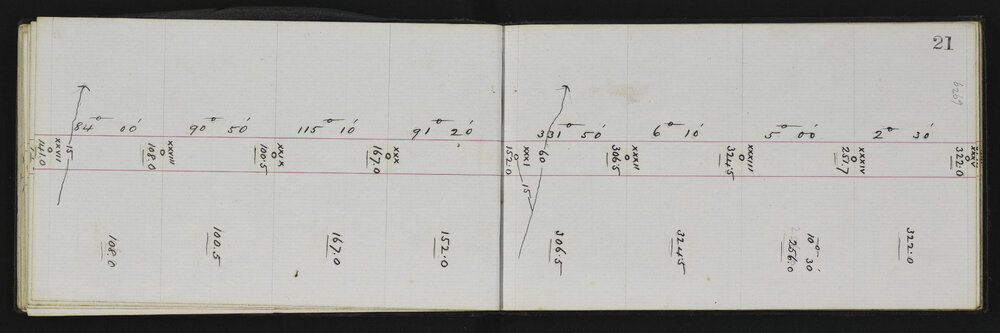 21
6269
84° 00'
90° 50'
115° 10'
91° 20'
331° 50'
6° 10'
5° 00'
2° 30'
XXVII
141.0
15
XXVIII
108.0
XXIX
100.5
XXX
167.0
XXXI
152.0
60
15
XXXII
306.5
XXXIII
324.5
XXXIV
251.7
XXXV
322.0
108.0
100.5
167.0
152.0
306.5
324.5
10° 30'
256.0
322.0